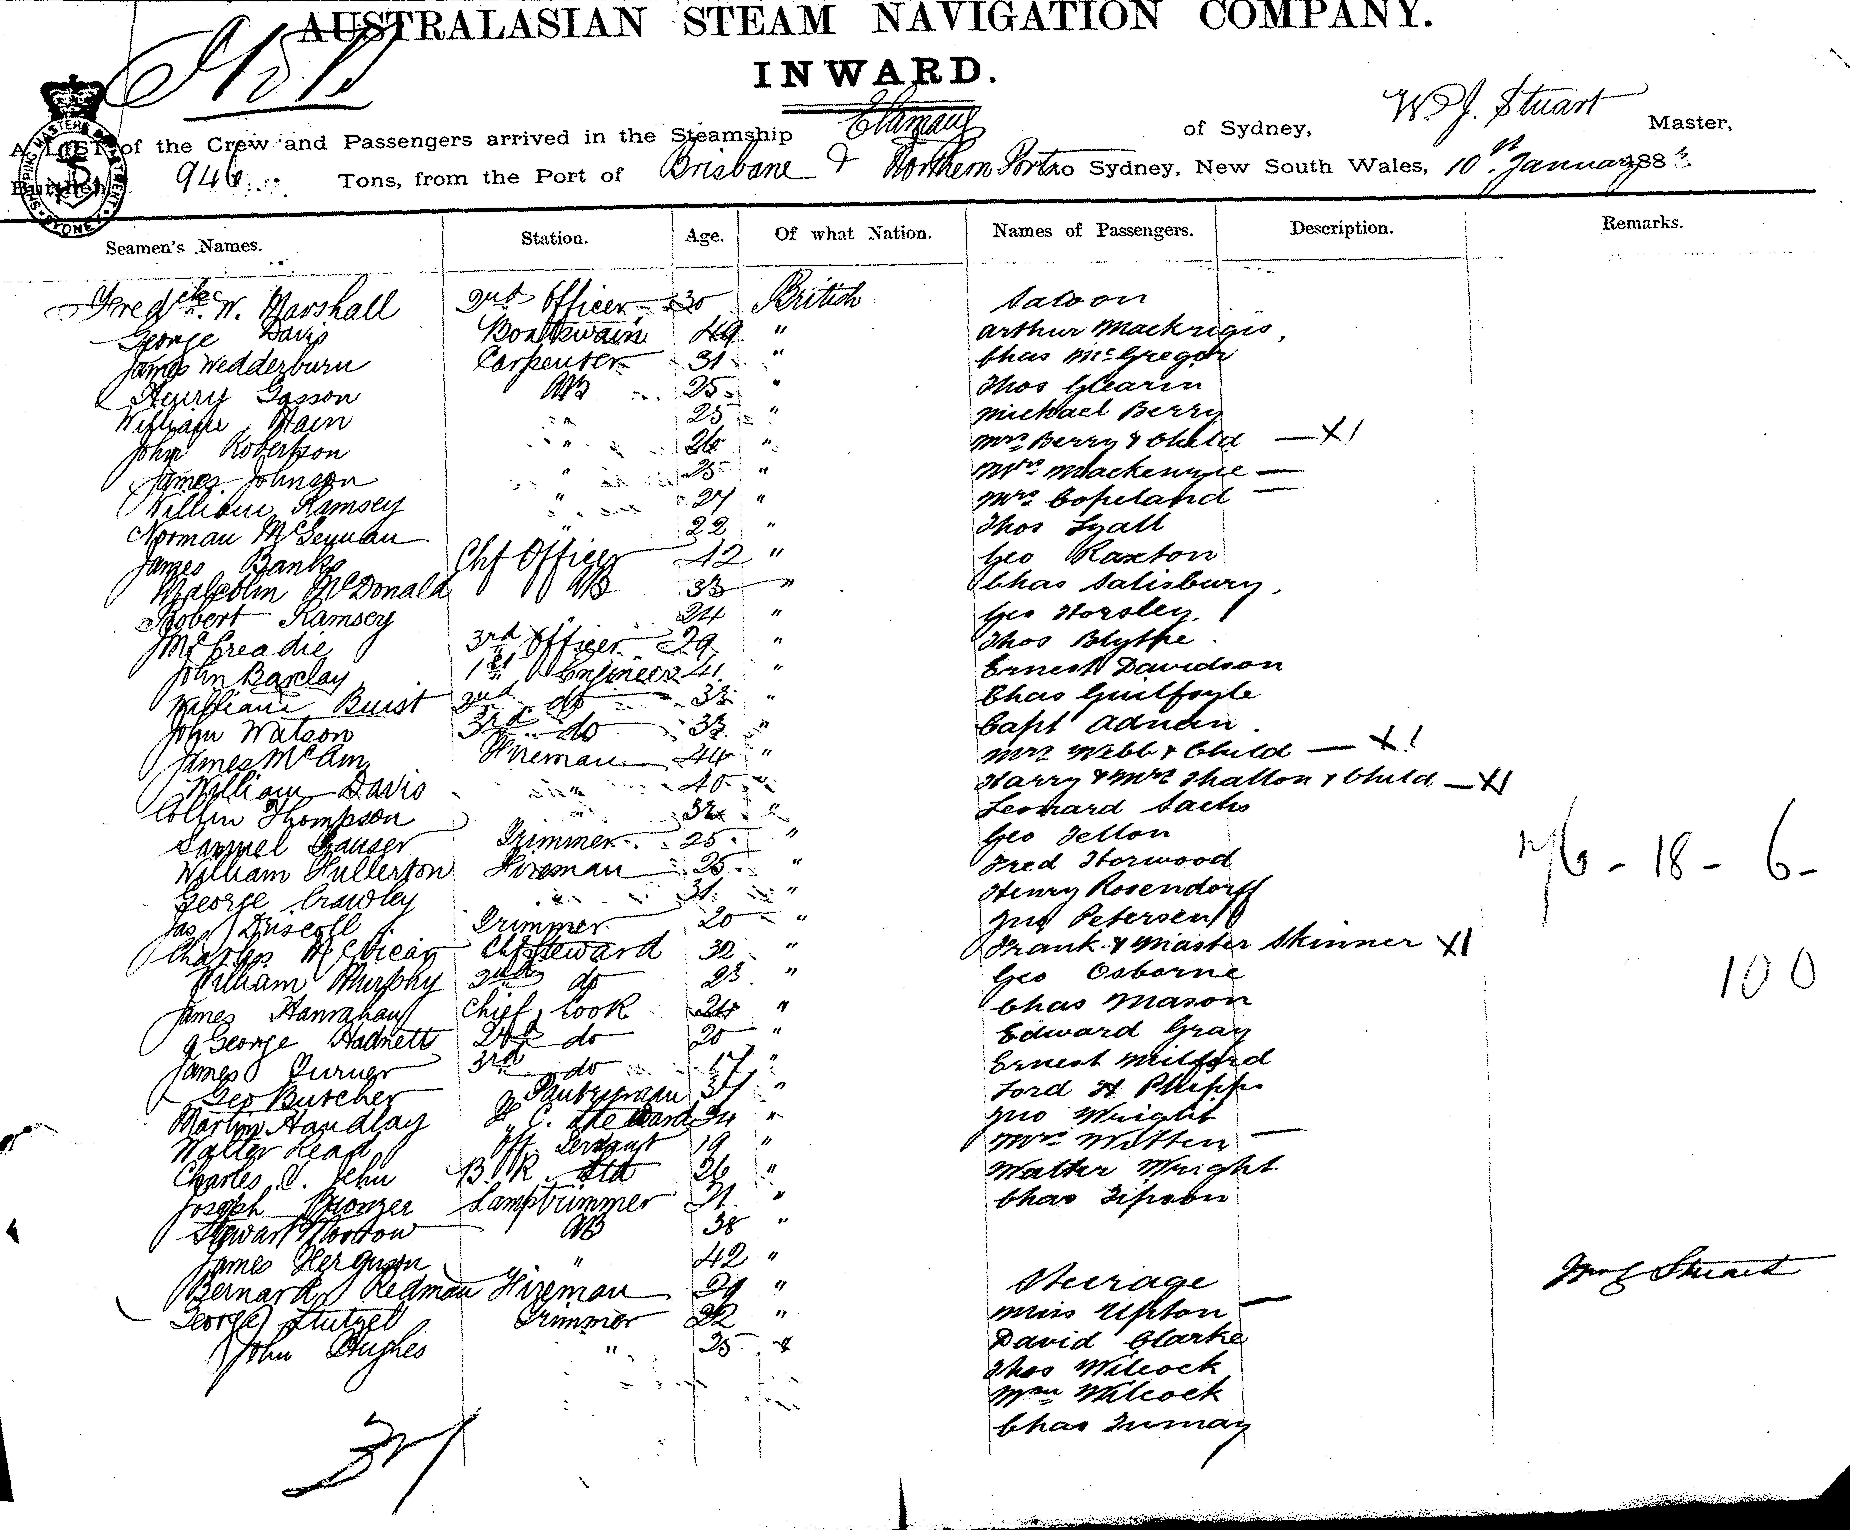 AUSTRALASIAN STEAM NAVIGATION COMPANY.
INWARD.
A LIST of the Crew and Passengers arrived in the Steamship of Sydney, W J. Stuart Master,
Burthen 946 Tons, from the Port of Brisbane & Northern Ports to Sydney, New South Wales, 10 January 188
Seamen's Names. Station. Age. Of what Nation. Names of Passengers. Description. Remarks.
W. Marshall 2nd Officer 30 British Saloon
George Davis Boatswain 49 " Arthur
James Wedderburn Carpenter 31 " Chas McGregor
Henry Gasson AB 25 " Thos Glearin
William Main " 25 " Michael Berry
John Robertson " 26 " Mrs Berry & Child — X 1
James Johnson " 25 " Mrs Mackenzie —
William Ramsey " 27 " Mrs Copeland —
Norman " 22 " Thos Lyall
James Banks Chf Officer 42 " Geo Raxton
Malcolm McDonald AB 33 " Chas Salisbury,
Robert Ramsey " 24 " Geo Horsley.
McCreadie 3rd Officer 29 " Thos Blythe
John Barclay 1st Engineer 41 " Ernest Davidson
William Buist 2nd do 33 " Chas Guilfoyle
John Watson 3rd do 33 " Capt Adnan
James Fireman 44 " Mrs Webb & Child — X 1
William Davis " 40 " Harry & Mrs Thatton & Child — X1
Collin Thompson " 32 " Leonard Sachs
Samuel Trimmer 25 " Geo Tetlon
William Fullerton Fireman 25 " Fred Horwood
George Crawley " 31 " Henry Rosendorff
Jas Driscoll Trimmer 20 " Jno Petersen
Charles McVicar Chf Steward 32 " Frank & Master Skinner X1
William Murphy 2nd do 23 " Geo Osborne
James Hanrahan Chief Cook " Chas Mason
George Hadnett 2nd do 20 " Edward Gray
James Turner 3rd do 17 " Ernest Milford
Geo Butcher Pantryman 37 " Ford H Phipps
Martin Handlay Steward " Jno Wright
Walter Read Off. Servant 19 " Mrs Witten —
Charles 26 " Walter Wright
Joseph Lamptrimmer 21 " Chas
Stewart Morrow AB 38 "
James Ferguson " 42 "
Bernard Redman Fireman 29 " Steerage
George Stutzel Trimmer 22 " Miss Upton —
John Hughes " 25 " David Clarke
Thos Wilcock
Wm Wilcock
Chas
- 18 - 6 -
100
Stuart